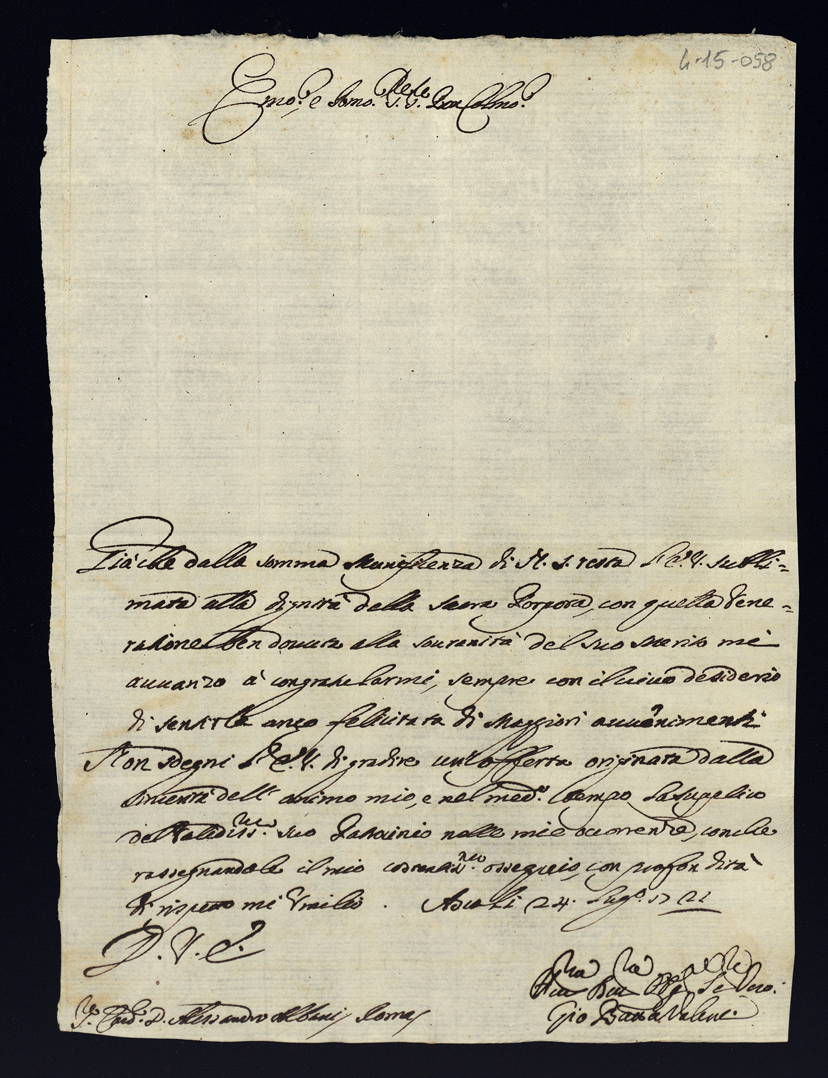 4-15-058
Em.o e Rmo. Sig.re Sig.re Pron Colmo.
Già che dalla somma Munificenza di N. S. resta l'E. V. subli=
mata alla dignità della Sacra Porpora, con quella Vene=
ratione ben douuta alla souranità del suo Merito mi
auuanzo à congratularmi, sempre con il uiuo desiderio
di sentirla anco felicitata di Maggiori auuenimenti
Non sdegni l'E. V. di gradire un'offerta originata dalla
sincerità dell'animo mio, e nel med.o tempo la supplico
del Ualidiss.mo suo Patrocinio nelle mie occorrenze, con che
rassegnandole il mio ossequio, con profondità
di rispetto mi Umilio. Ascoli 24. Lug.o 1721
D. V. E.
Card. D. Alessandro Albani Roma
Gio Batta